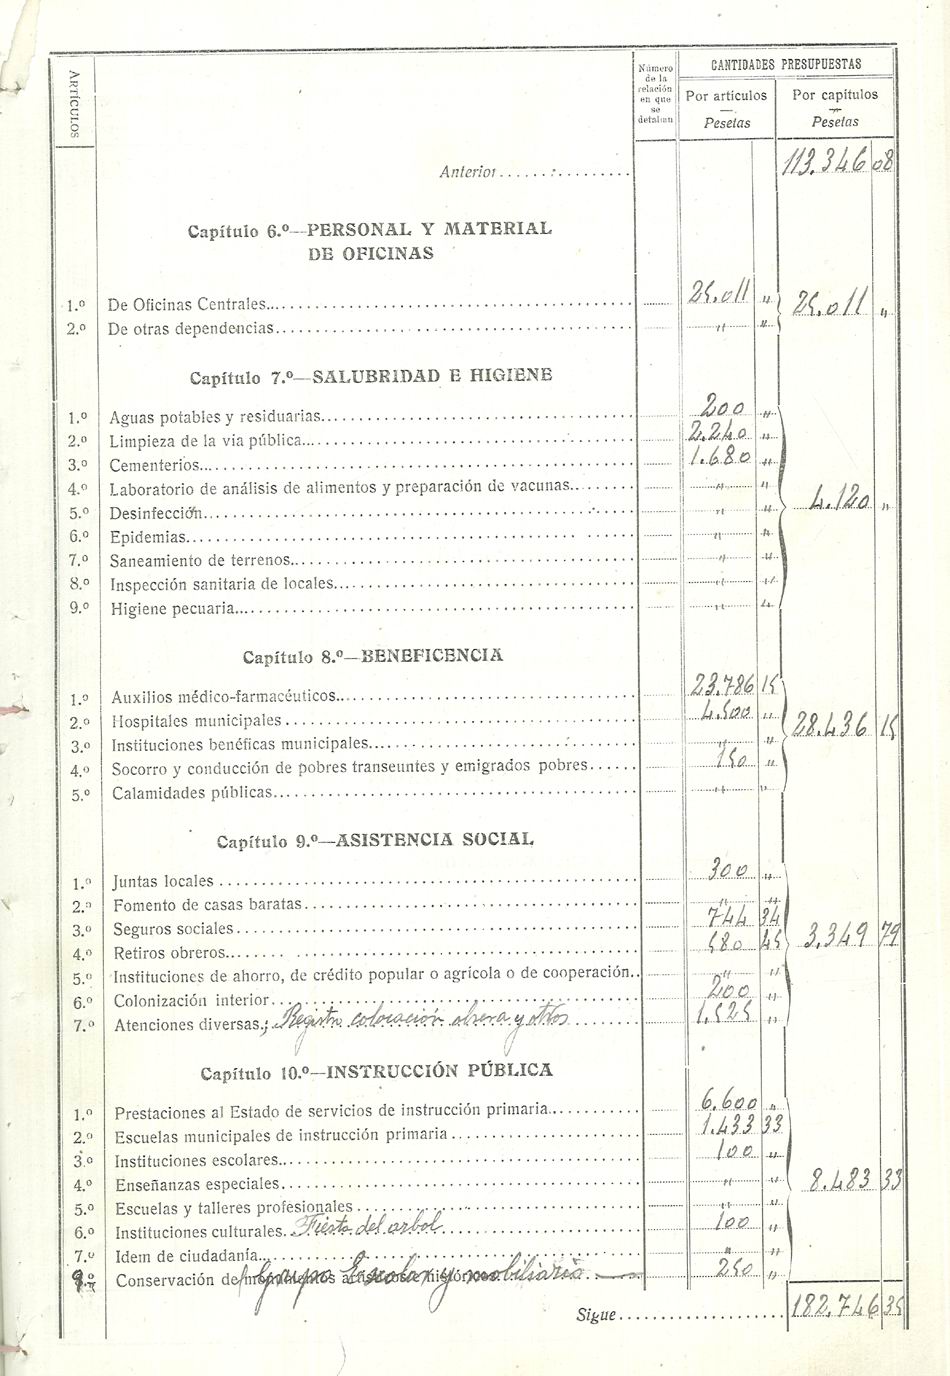 ARTÍCULOS
Número de la relación en que se detallan
CANTIDADES PRESUPUESTAS
Por artículos
Pesetas
Por capítulos
Pesetas
Anterior 113.346 08
Capítulo 6.º—PERSONAL Y MATERIAL
DE OFICINAS
1.º De Oficinas Centrales 25.011 „ 25.011 „
2.º De otras dependencias „ „
Capítulo 7.º—SALUBRIDAD E HIGIENE
1.º Aguas potables y residuarias 200 „
2.º Limpieza de la vía pública 2.240 „
3.º Cementerios 1.680 „
4.º Laboratorio de análisis de alimentos y preparación de vacunas „ „
5.º Desinfección „ „ 4.120 „
6.º Epidemias „ „
7.º Saneamiento de terrenos „ „
8.º Inspección sanitaria de locales „ „
9.º Higiene pecuaria „ „
Capítulo 8.º—BENEFICENCIA
1.º Auxilios médico-farmacéuticos 23.786 15
2.º Hospitales municipales 4.500 „ 28.436 15
3.º Instituciones benéficas municipales „ „
4.º Socorro y conducción de pobres transeuntes y emigrados pobres 150 „
5.º Calamidades públicas „ „
Capítulo 9.º—ASISTENCIA SOCIAL
1.º Juntas locales 300 „
2.º Fomento de casas baratas „ „
3.º Seguros sociales 744 34 3.349 79
4.º Retiros obreros 580 45
5.º Instituciones de ahorro, de crédito popular o agrícola o de cooperación „ „
6.º Colonización interior 200 „
7.º Atenciones diversas; Registro colocación obrera y otros 1.525 „
Capítulo 10.º—INSTRUCCIÓN PÚBLICA
1.º Prestaciones al Estado de servicios de instrucción primaria 6.600 „
2.º Escuelas municipales de instrucción primaria 1.433 33
3.º Instituciones escolares 100 „
4.º Enseñanzas especiales „ „ 8.483 33
5.º Escuelas y talleres profesionales „ „
6.º Instituciones culturales Fiesta del arbol 100 „
7.º Idem de ciudadanía „ „
Conservación de Grupo Escolar y mobiliario 250 „
Sigue 182.746 35